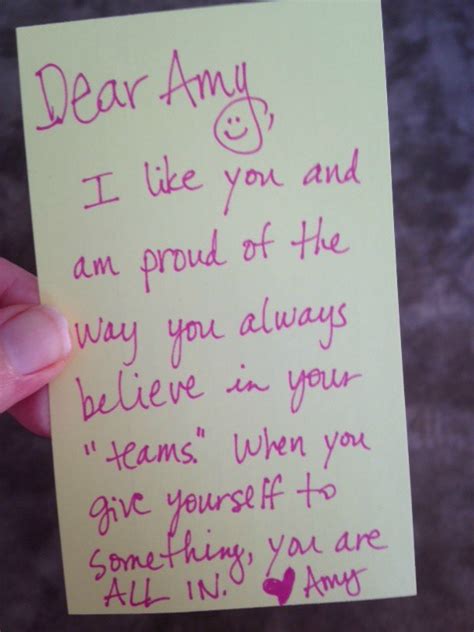 Dear Amy,
I like you and
am proud of the
way you always
believe in your
"teams." When you
give yourself to
something, you are
ALL IN. ♥ Amy